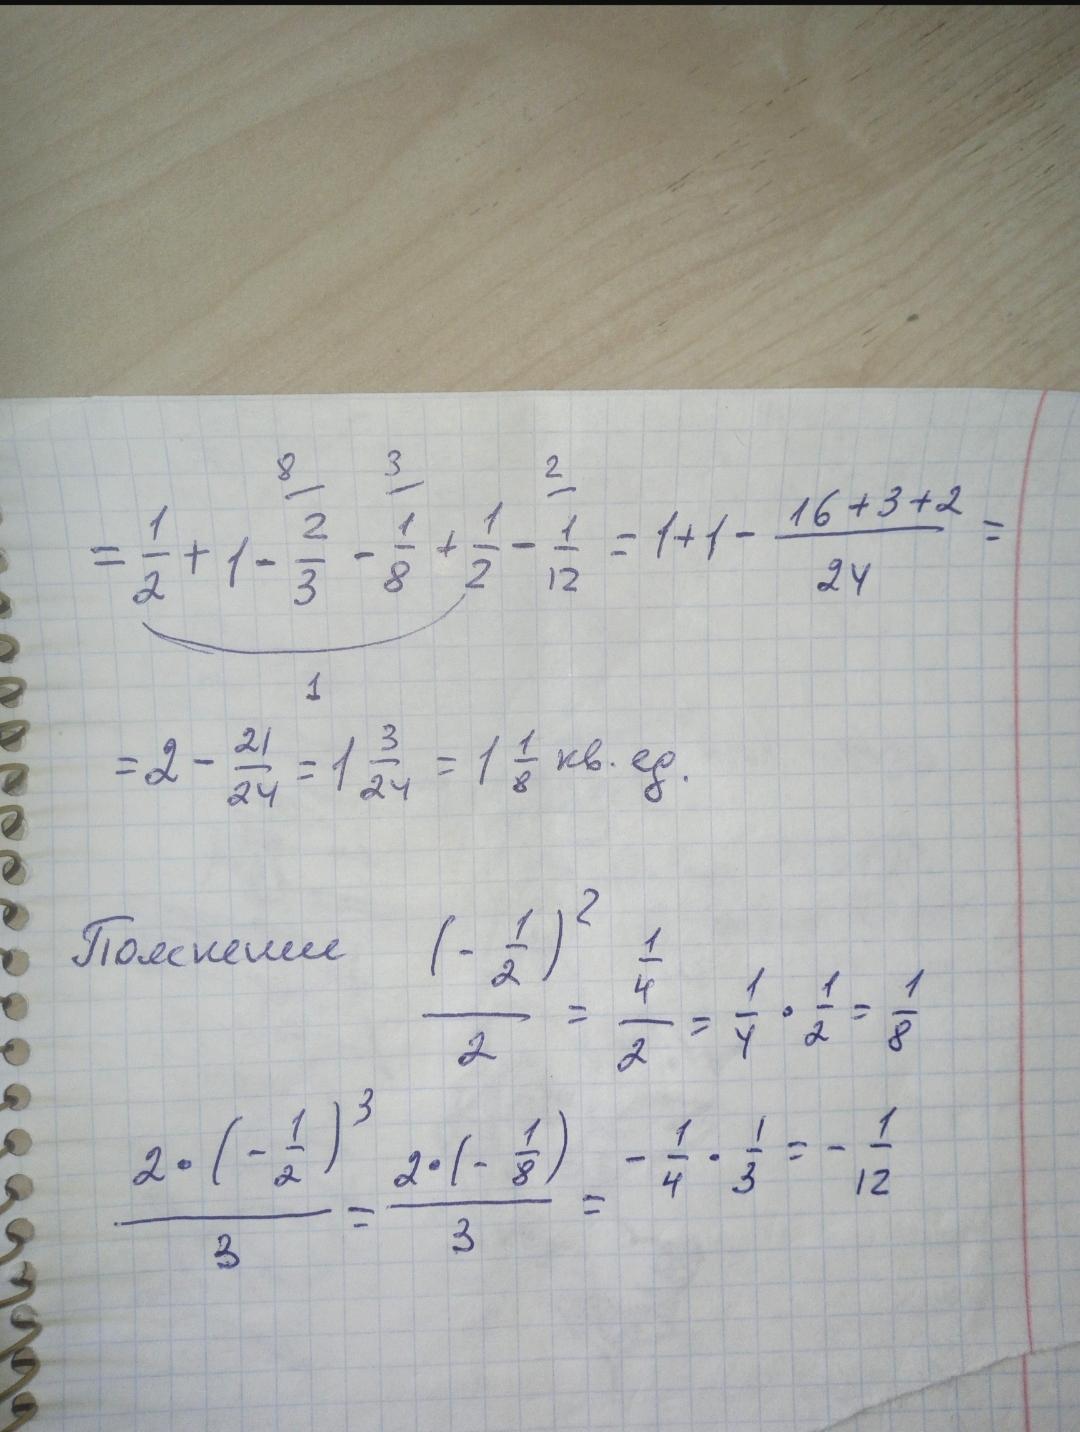 8 3 2
= 1/2 + 1 - 2/3 - 1/8 + 1/2 - 1/12 = 1+1 - (16+3+2)/24 =
1
= 2 - 21/24 = 1 3/24 = 1 1/8 кв. ед.
Пояснение (-1/2)^2/2 = (1/4)/2 = 1/4 · 1/2 = 1/8
2·(-1/2)^3/3 = 2·(-1/8)/3 = -1/4 · 1/3 = -1/12